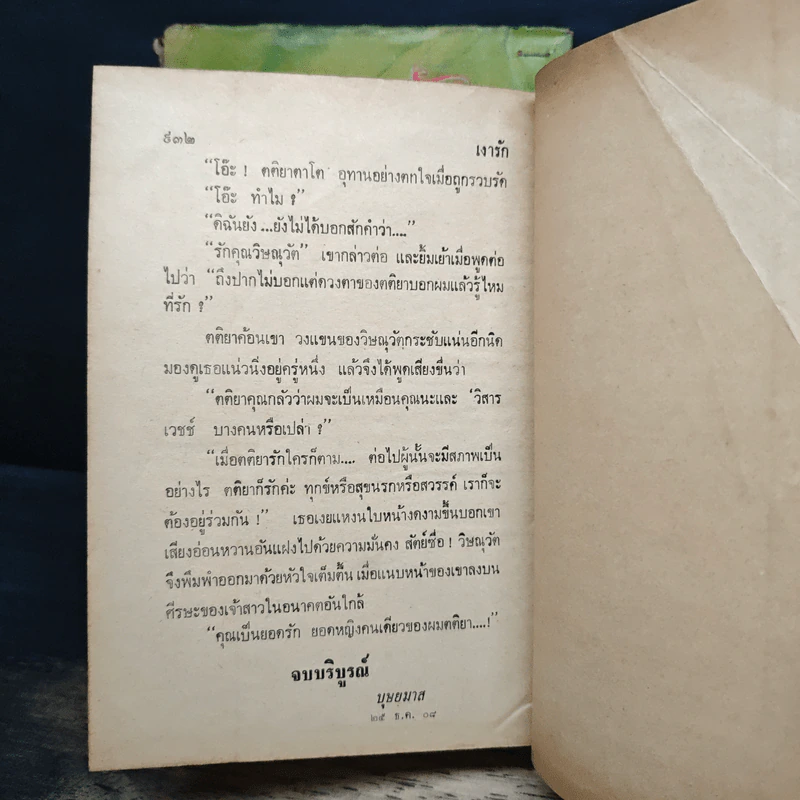 ๙๓๒
เงารัก
“โอ๊ะ ! ตติยาตาโต อุทานอย่างตกใจเมื่อถูกรวบรัด
“โอ๊ะ ทำไม ?”
“ดิฉันยัง ...ยังไม่ได้บอกสักคำว่า....”
“รักคุณวิษณุวัต” เขากล่าวต่อ และยิ้มเย้าเมื่อพูดต่อ
ไปว่า “ถึงปากไม่บอกแต่ดวงตาของตติยาบอกผมแล้วรู้ไหม
ที่รัก ?”
ตติยาค้อนเขา วงแขนของวิษณุวัตกระชับแน่นอีกนิด
มองดูเธอแน่วนิ่งอยู่ครู่หนึ่ง แล้วจึงได้พูดเสียงขื่นว่า
“ตติยาคุณกลัวว่าผมจะเป็นเหมือนคุณนะและ ‘วิสาร
เวชช์ บางคนหรือเปล่า ?”
“เมื่อตติยารักใครก็ตาม.... ต่อไปผู้นั้นจะมีสภาพเป็น
อย่างไร ตติยาก็รักค่ะ ทุกข์หรือสุขนรกหรือสวรรค์ เราก็จะ
ต้องอยู่ร่วมกัน !” เธอเงยแหงนใบหน้างดงามขึ้นบอกเขา
เสียงอ่อนหวานอันแฝงไปด้วยความมั่นคง สัตย์ซื่อ ! วิษณุวัต
จึงพึมพำออกมาด้วยหัวใจเต็มตื้น เมื่อแนบหน้าของเขาลงบน
ศีรษะของเจ้าสาวในอนาคตอันใกล้
“คุณเป็นยอดรัก ยอดหญิงคนเดียวของผมตติยา....!”
จบบริบูรณ์
บุษยมาส
๒๕ ธ.ค. ๑๘